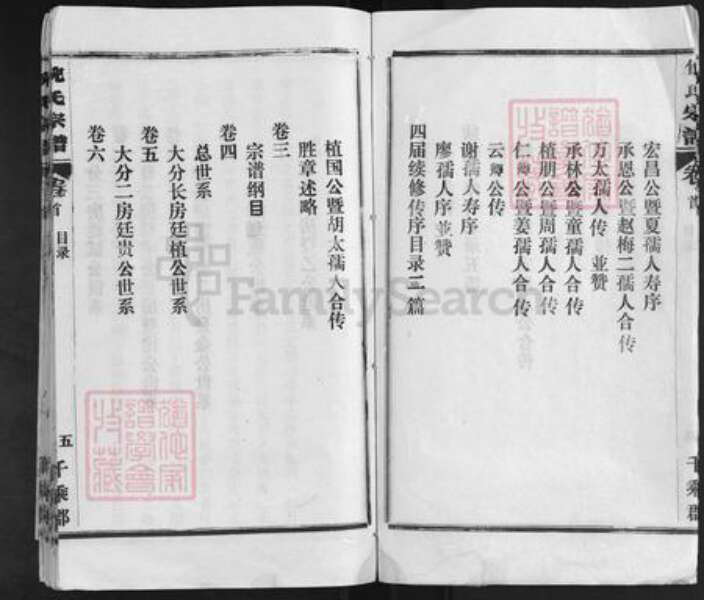 宏昌公暨夏孺人寿序
承恩公暨赵梅二孺人合传
万太孺人传 並赞
承林公暨童孺人合传
植朋公暨周孺人合传
仁卿公暨姜孺人合传
云卿公传
谢孺人寿序
廖孺人序並赞
四届续修传序目录二篇
千乘郡
植国公暨胡太孺人合传
胜章述略
卷三
宗谱纲目
卷四
总世系
大分长房廷植公世系
卷五
大分二房廷贵公世系
卷六
氏宗譜
卷首
目录
五
千乘郡
FamilySearch